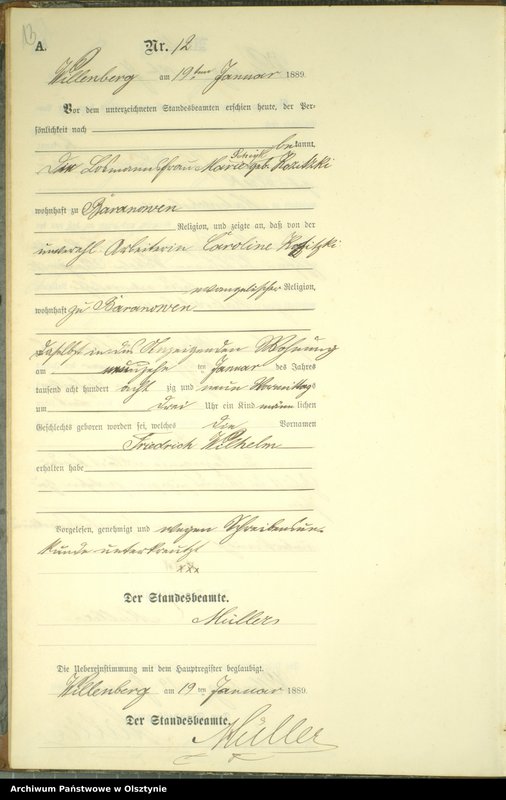 13
A.
Nr. 12
Willenberg am 19ten Januar 1889.
Vor dem unterzeichneten Standesbeamten erschien heute, der Per-
sönlichkeit nach
bekannt,
Die Losmannsfrau Marie geb. Kozitzki
wohnhaft zu Baranowen
Religion, und zeigte an, daß von der
unverehl. Arbeiterin Caroline Kozitzki
evangelischer Religion,
wohnhaft zu Baranowen
daselbst in des Anzeigenden Wohnung
am neunzehn ten Januar des Jahres
tausend acht hundert acht zig und neun Vormittags
um drei Uhr ein Kind männlichen
Geschlechts geboren worden sei, welches die Vornamen
Friedrich Wilhelm
erhalten habe
Vorgelesen, genehmigt und wegen Schreibensun-
kunde unterkreuzt
xxx
Der Standesbeamte.
Müller
Die Uebereinstimmung mit dem Hauptregister beglaubigt.
Willenberg am 19 ten Januar 1889.
Der Standesbeamte.
Müller
Archiwum Państwowe w Olsztynie